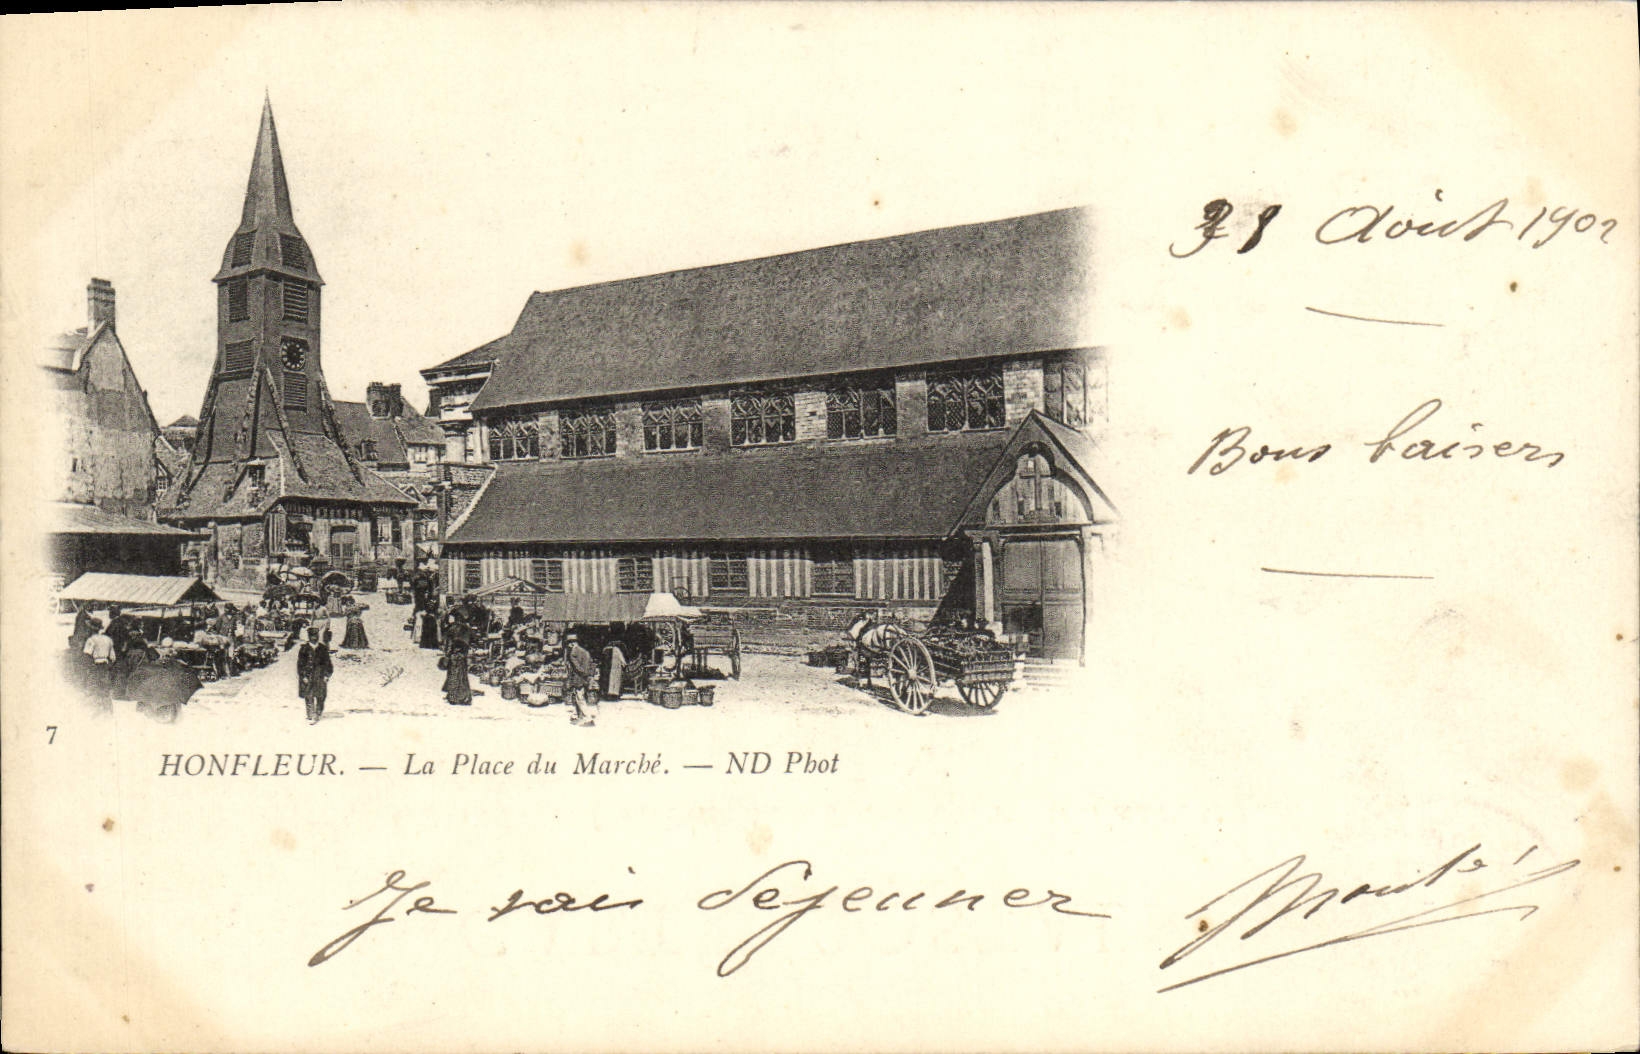 31 Août 1902
Bons baisers
7
HONFLEUR. — La Place du Marché. — ND Phot
Je vais déjeuner